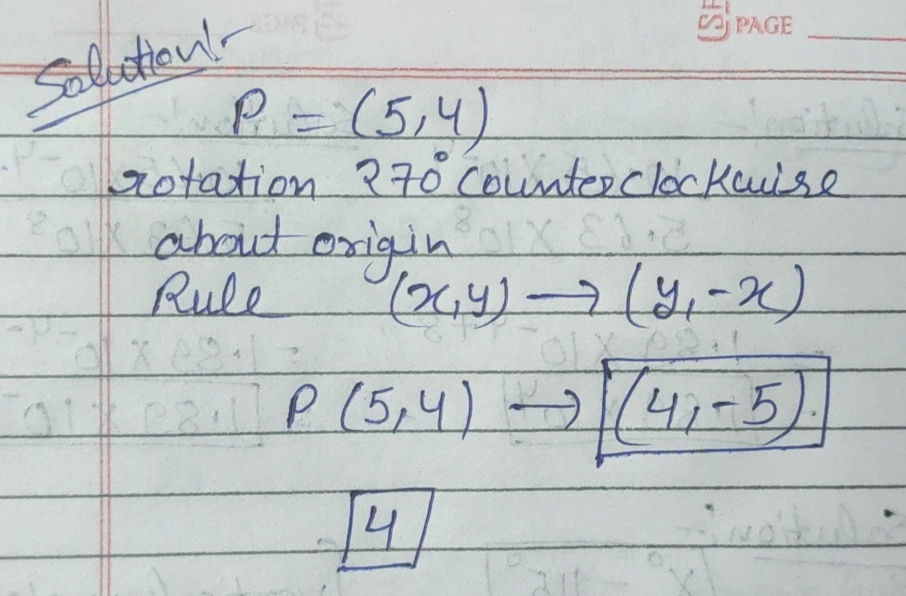 PAGE
Solution:-
P = (5,4)
rotation 270° counterclockwise
about origin
Rule (x,y) → (y,-x)
P (5,4) → (4,-5).
4